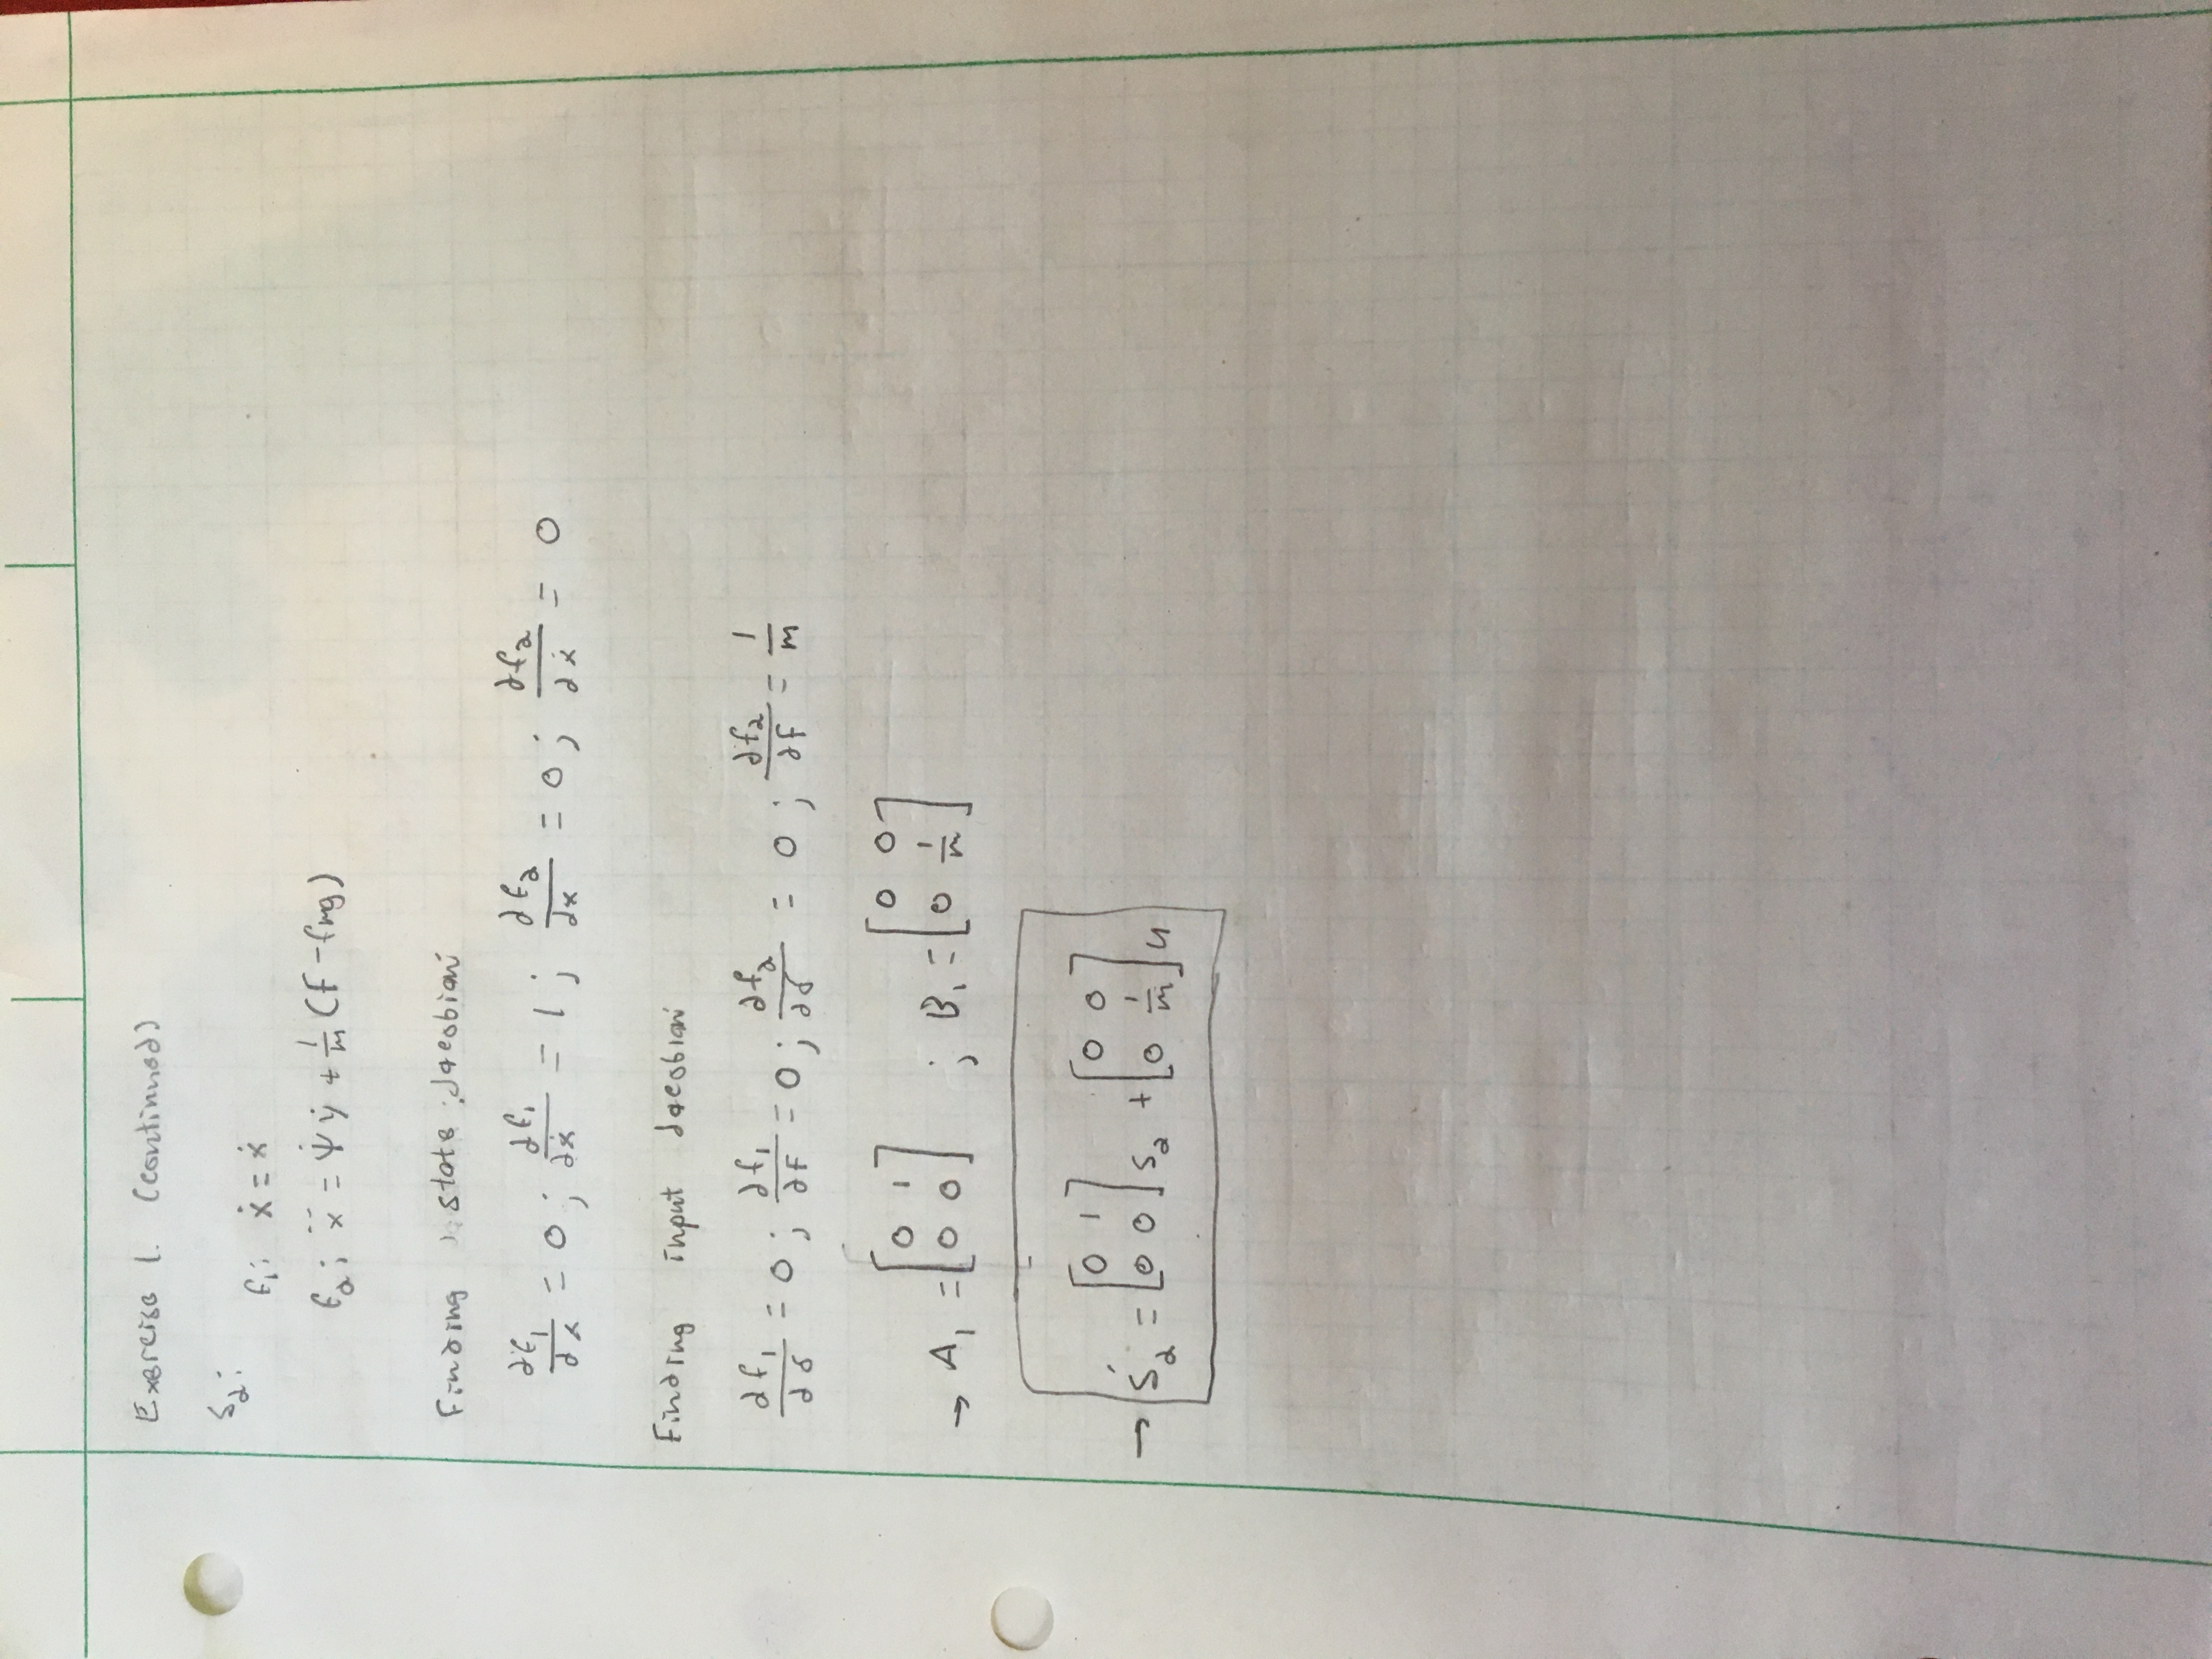 Exercise 1. (continued)
S₂:
f₁: ẋ = ẋ
f₂: ẍ = ψ̇ ẏ + 1/m (F - fmg)
Finding state Jacobian
∂f₁/∂x = 0 ; ∂f₁/∂ẋ = 1 ; ∂f₂/∂x = 0 ; ∂f₂/∂ẋ = 0
Finding input Jacobian
∂f₁/∂δ = 0 ; ∂f₁/∂F = 0 ; ∂f₂/∂δ = 0 ; ∂f₂/∂F = 1/m
→ A₁ = [0 1; 0 0] ; B₁ = [0 0; 0 1/m]
→ Ṡ₂ = [0 1; 0 0] S₂ + [0 0; 0 1/m] u